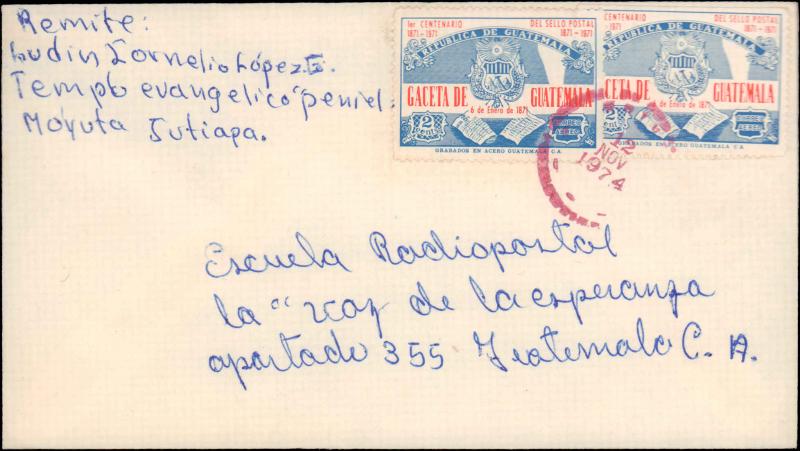 Remite:
Ludin Cornelio López E.
Templo evangelico "peniel.
Moyuta Jutiapa.
1er CENTENARIO 1871-1971
DEL SELLO POSTAL 1871-1971
REPUBLICA DE GUATEMALA
GACETA DE GUATEMALA
6 de Enero de 1871
2 cents
CORREO AEREO
GRABADOS EN ACERO GUATEMALA C.A.
1er CENTENARIO 1871-1971
DEL SELLO POSTAL 1871-1971
REPUBLICA DE GUATEMALA
CETA DE GUATEMALA
de Enero de 1871
2 cents
CORREO AEREO
GRABADOS EN ACERO GUATEMALA C.A.
12
NOV
1974
Escuela Radiopostal
la "voz de la esperanza
apartado 355 Guatemala C. A.